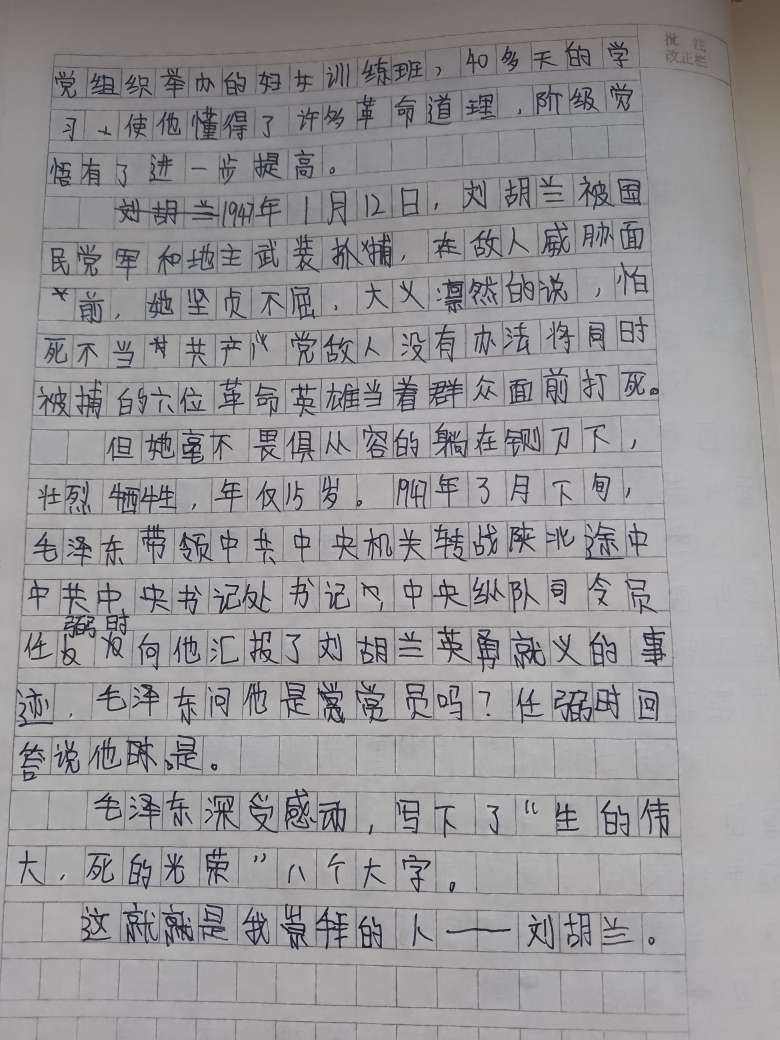 批注
改正栏
党组织举办的妇女训练班，40多天的学
习、使他懂得了许多革命道理，阶级党
悟有了进一步提高。
刘胡兰1947年1月12日，刘胡兰被国
民党军和地主武装抓捕，在敌人威胁面
前，她坚贞不屈，大义凛然的说，怕
死不当共产党敌人没有办法将同时
被捕的六位革命英雄当着群众面前打死。
但她毫不畏俱从容的躺在铡刀下，
壮烈牺牲，年仅15岁。1947年3月下旬，
毛泽东带领中共中央机关转战陕北途中
中共中央书记处书记，中央纵队司令员
任弼时向他汇报了刘胡兰英勇就义的事
迹，毛泽东问他是党员吗？任弼时回
答说他是。
毛泽东深受感动，写下了“生的伟
大，死的光荣”八个大字。
这就就是我崇拜的人——刘胡兰。